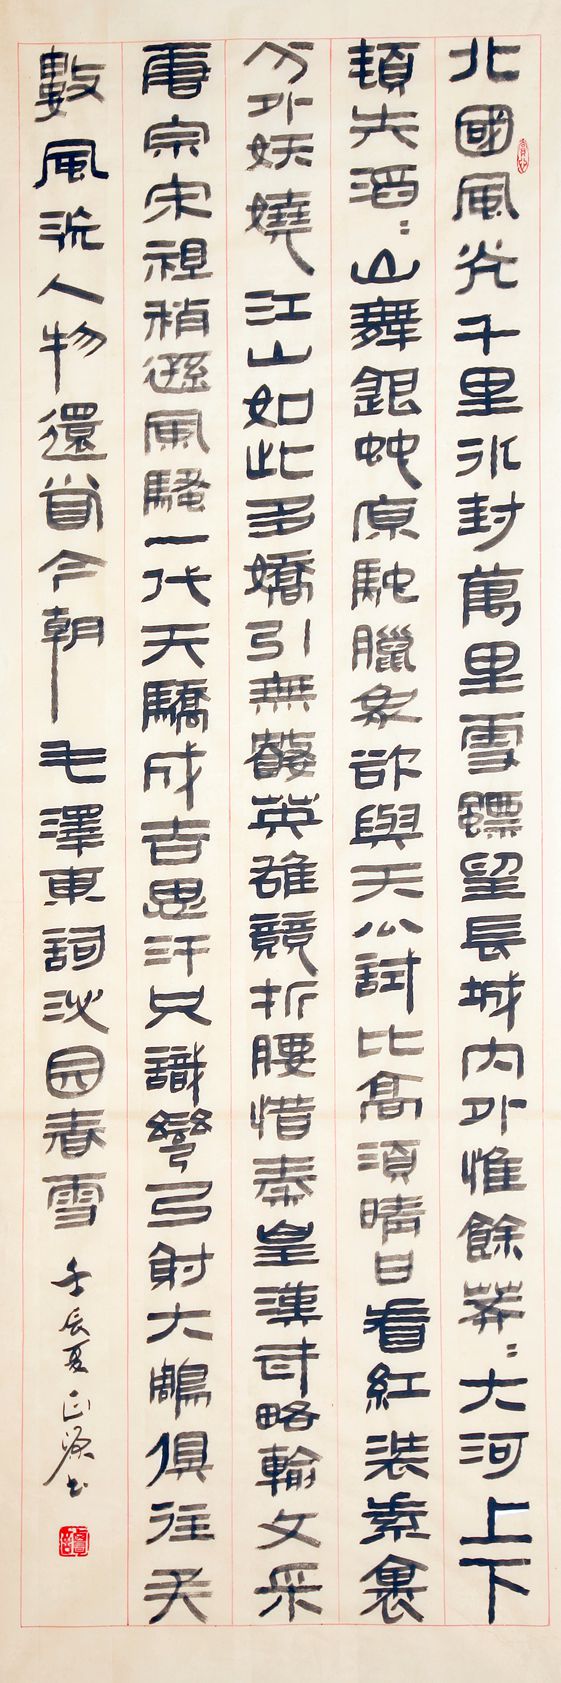 北國風光千里冰封萬里雪飄望長城内外惟餘莽:大河上下
頓失滔:山舞銀蛇原馳臘象欲與天公試比高須晴日看紅裝素裹
分外妖嬈江山如此多嬌引無數英雄競折腰惜秦皇漢武略輸文采
唐宗宋祖稍遜風騷一代天驕成吉思汗只識彎弓射大鵰俱往矣
數風流人物還看今朝毛澤東詞沁园春雪壬辰夏正源书